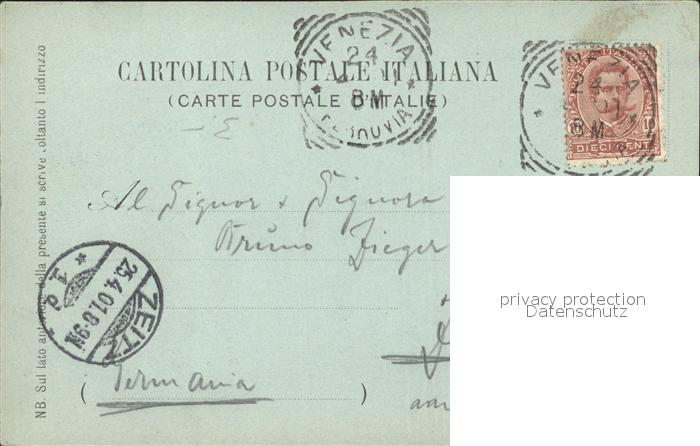 VENEZIA
24
4
8M
FERROVIA
CARTOLINA POSTALE ITALIANA
(CARTE POSTALE D'ITALIE)
VENEZIA
8M
DIECI CENT
Al Signor & Signora
Bruno Zieger
privacy protection
Datenschutz
25.4.01.8-9N
ZEITZ
(Germania)
NB. Sul lato anteriore della presente si scrive soltanto l indirizzo